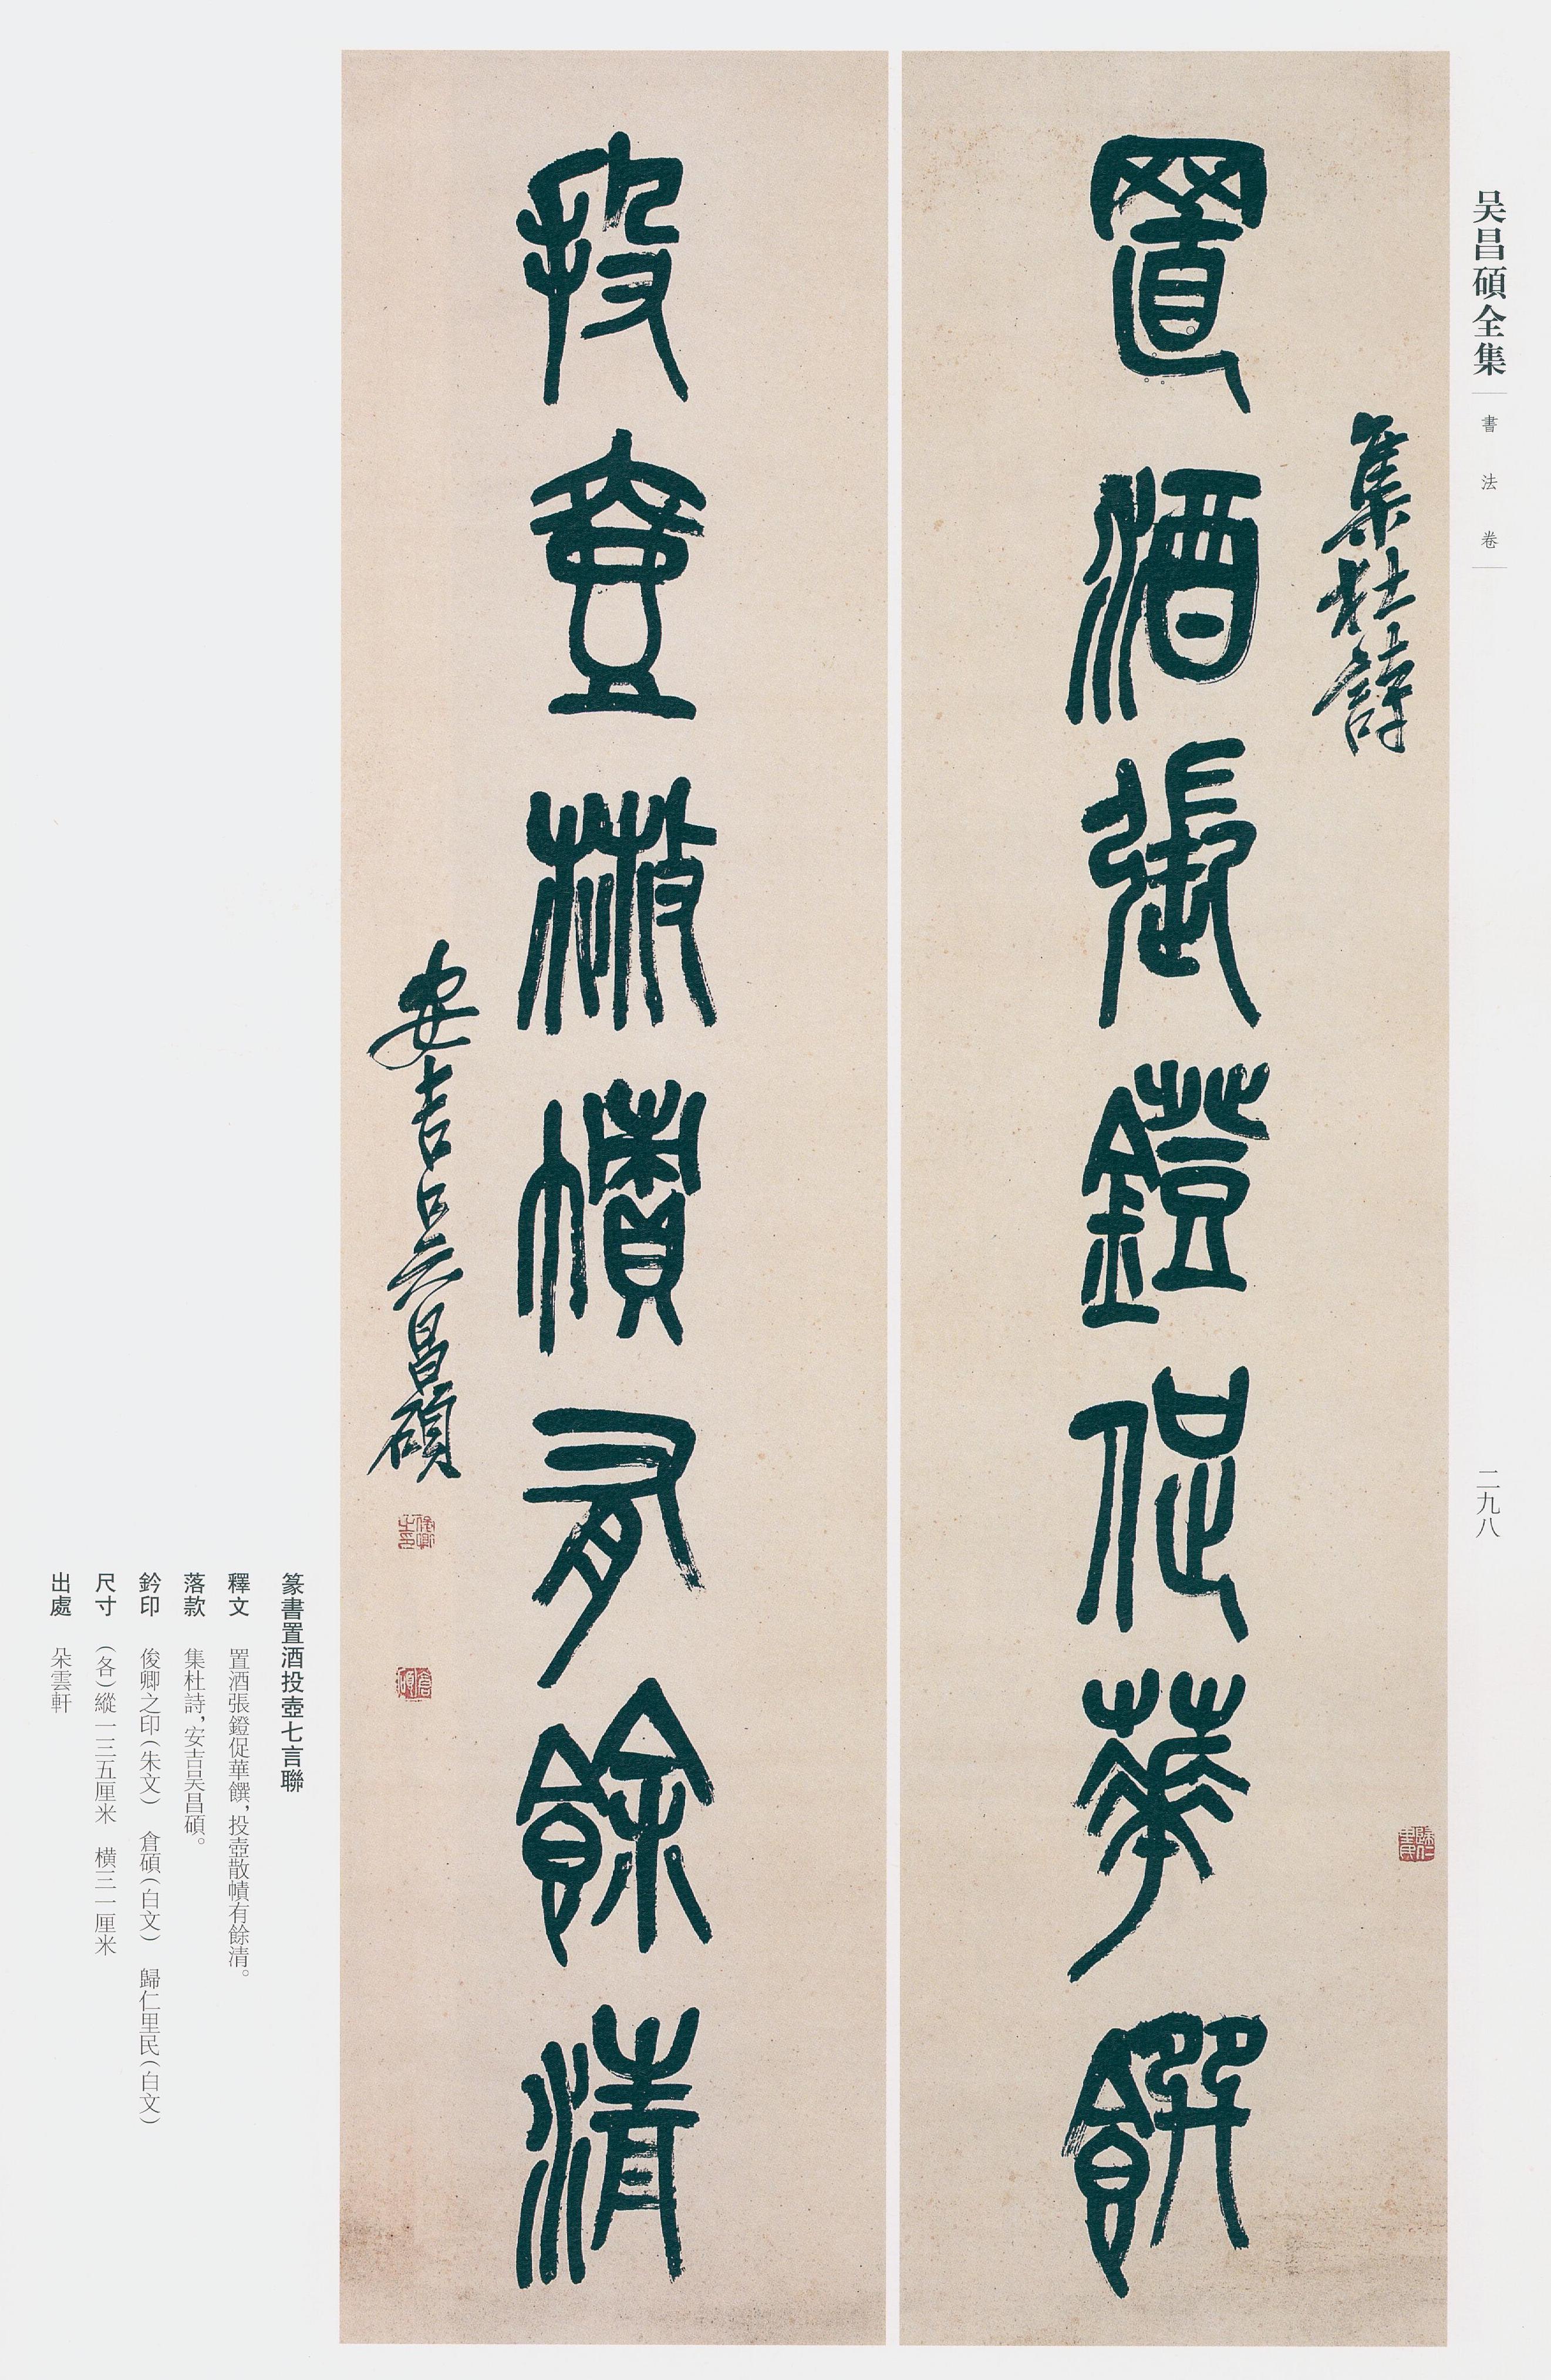 吴昌碩全集
書法卷
二九八
集杜詩
置酒張鐙促華饌
投壺散幘有餘清
安吉吴昌碩
歸仁里民
俊卿之印
倉碩
篆書置酒投壺七言聯
釋文　置酒張鐙促華饌，投壺散幘有餘清。
落款　集杜詩，安吉吴昌碩。
鈐印　俊卿之印（朱文）　倉碩（白文）　歸仁里民（白文）
尺寸　（各）縱一三五厘米　橫三一厘米
出處　朵雲軒